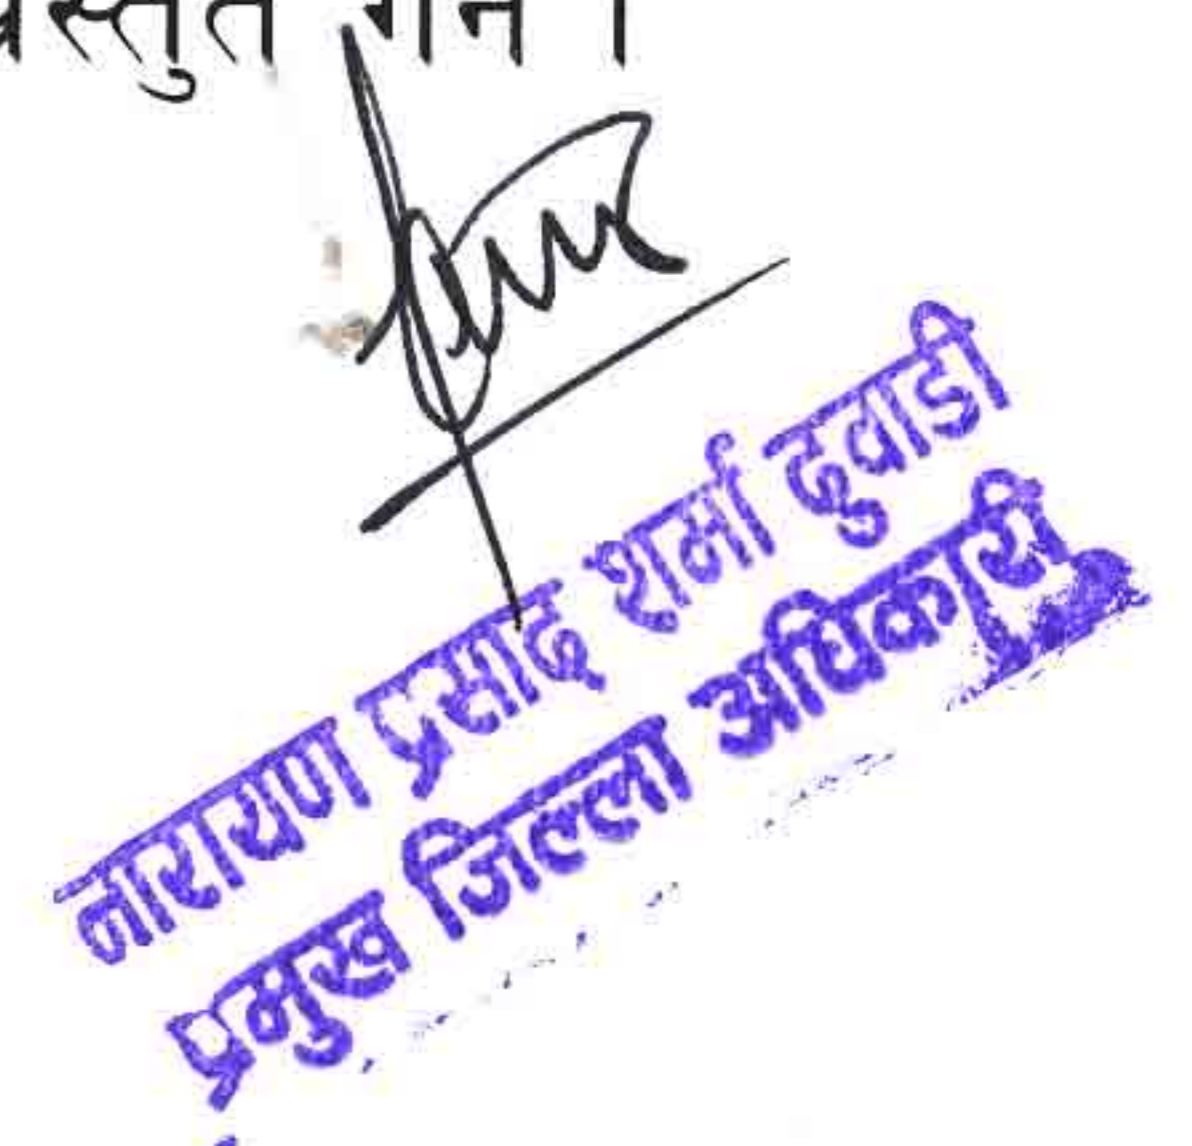 प्रस्तुत गर्न ।
नारायण प्रसाद शर्मा दुवाडी
प्रमुख जिल्ला अधिकारी